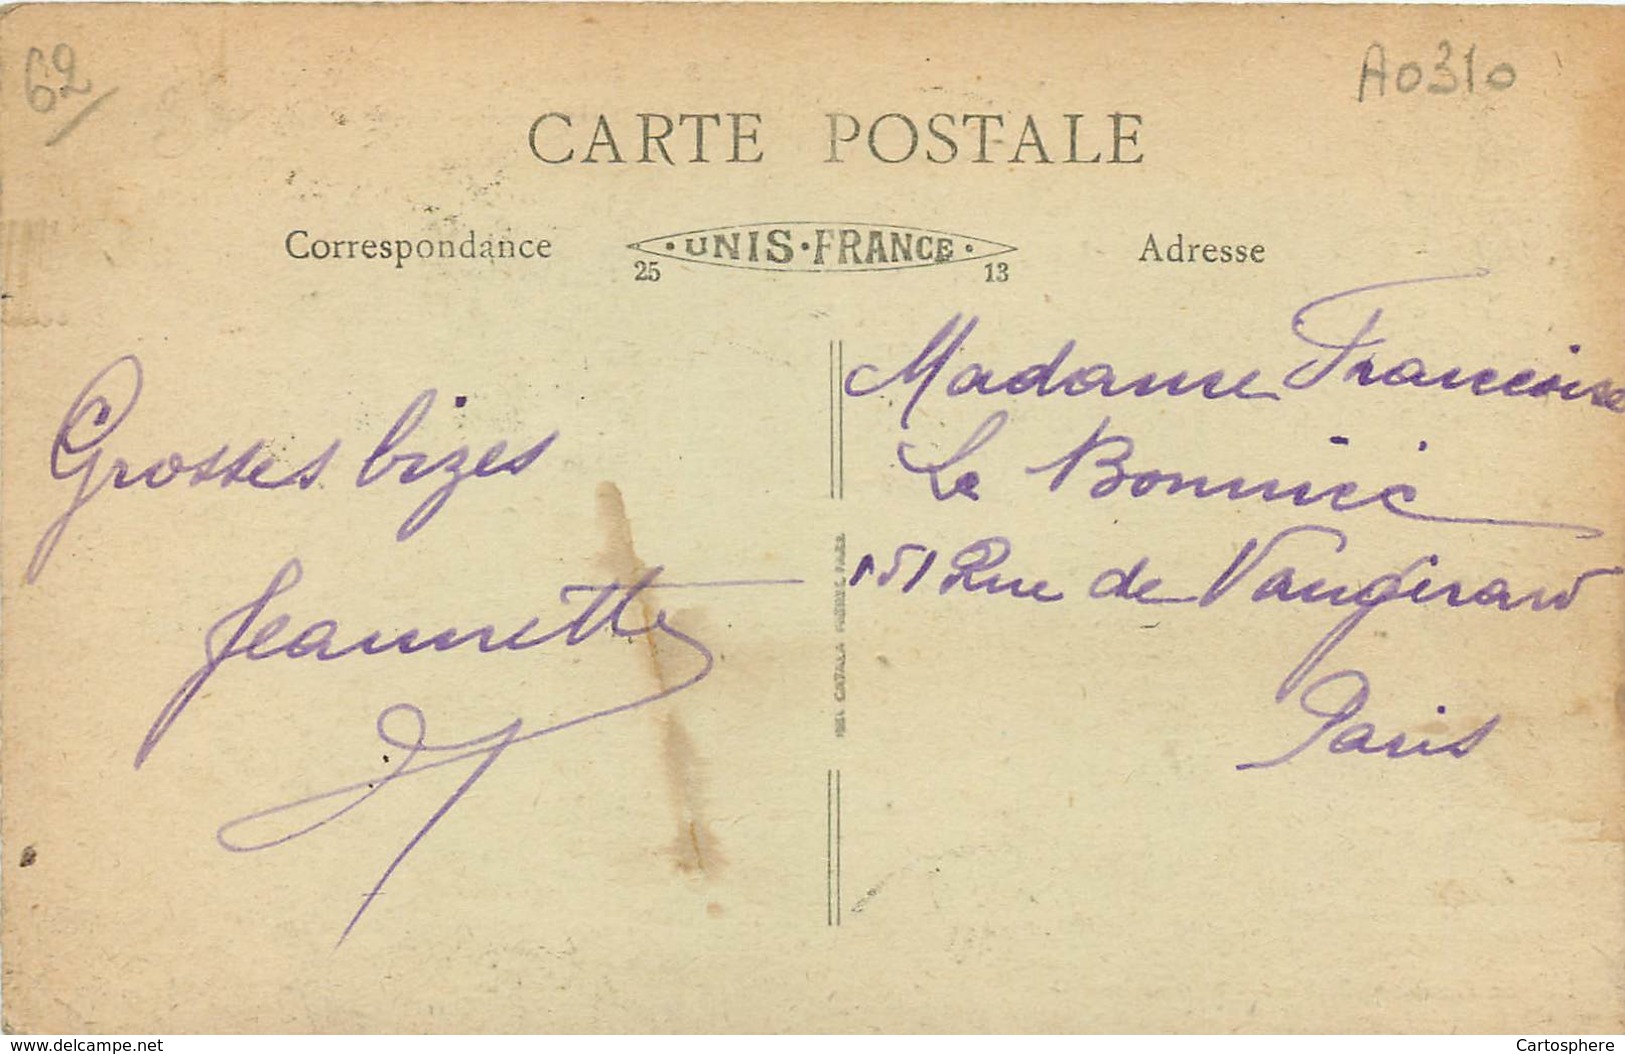 62/
A0310
CARTE POSTALE
Correspondance
·UNIS·FRANCE·
25 13
Adresse
Grosses bizes
Jeannette
Madame Francoise
Le Bonniec
151 Rue de Vaugirard
Paris
CATALA
www.delcampe.net
Cartosphere